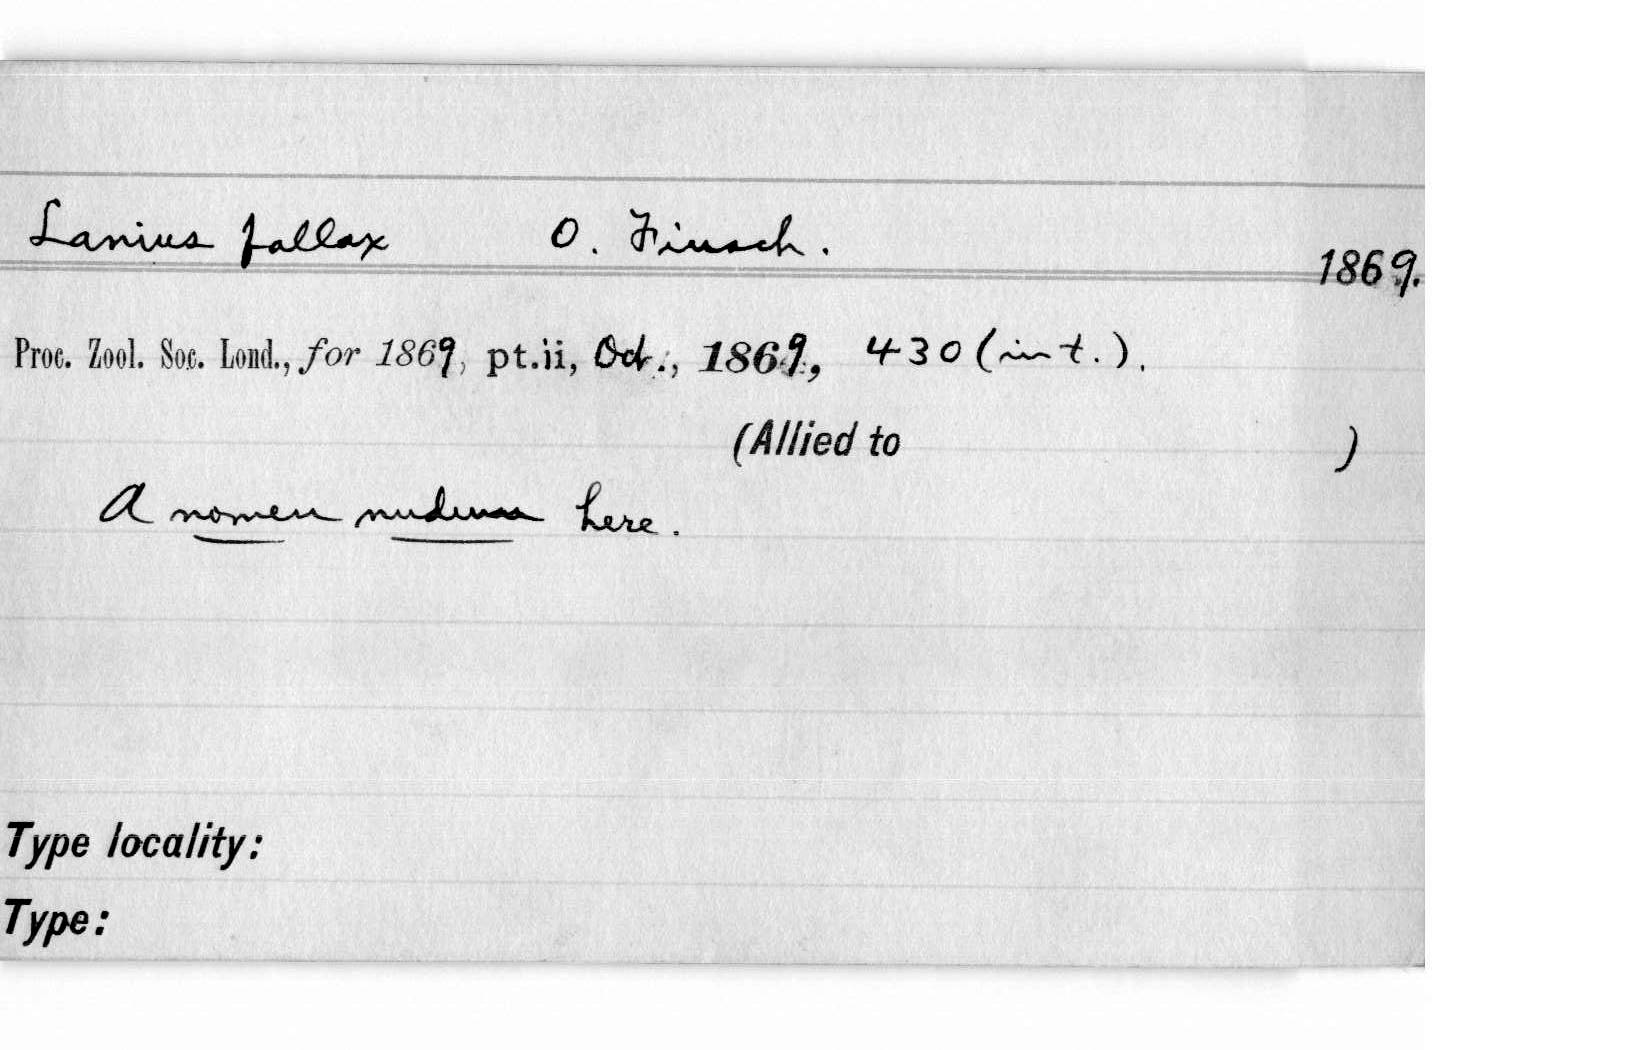 Lanius fallax O. Finsch.
1869.
Proc. Zool. Soc. Lond., for 1869, pt.ii, Oct., 1869, 430 (in t.).
(Allied to )
A nomen nudum here.
Type locality:
Type: